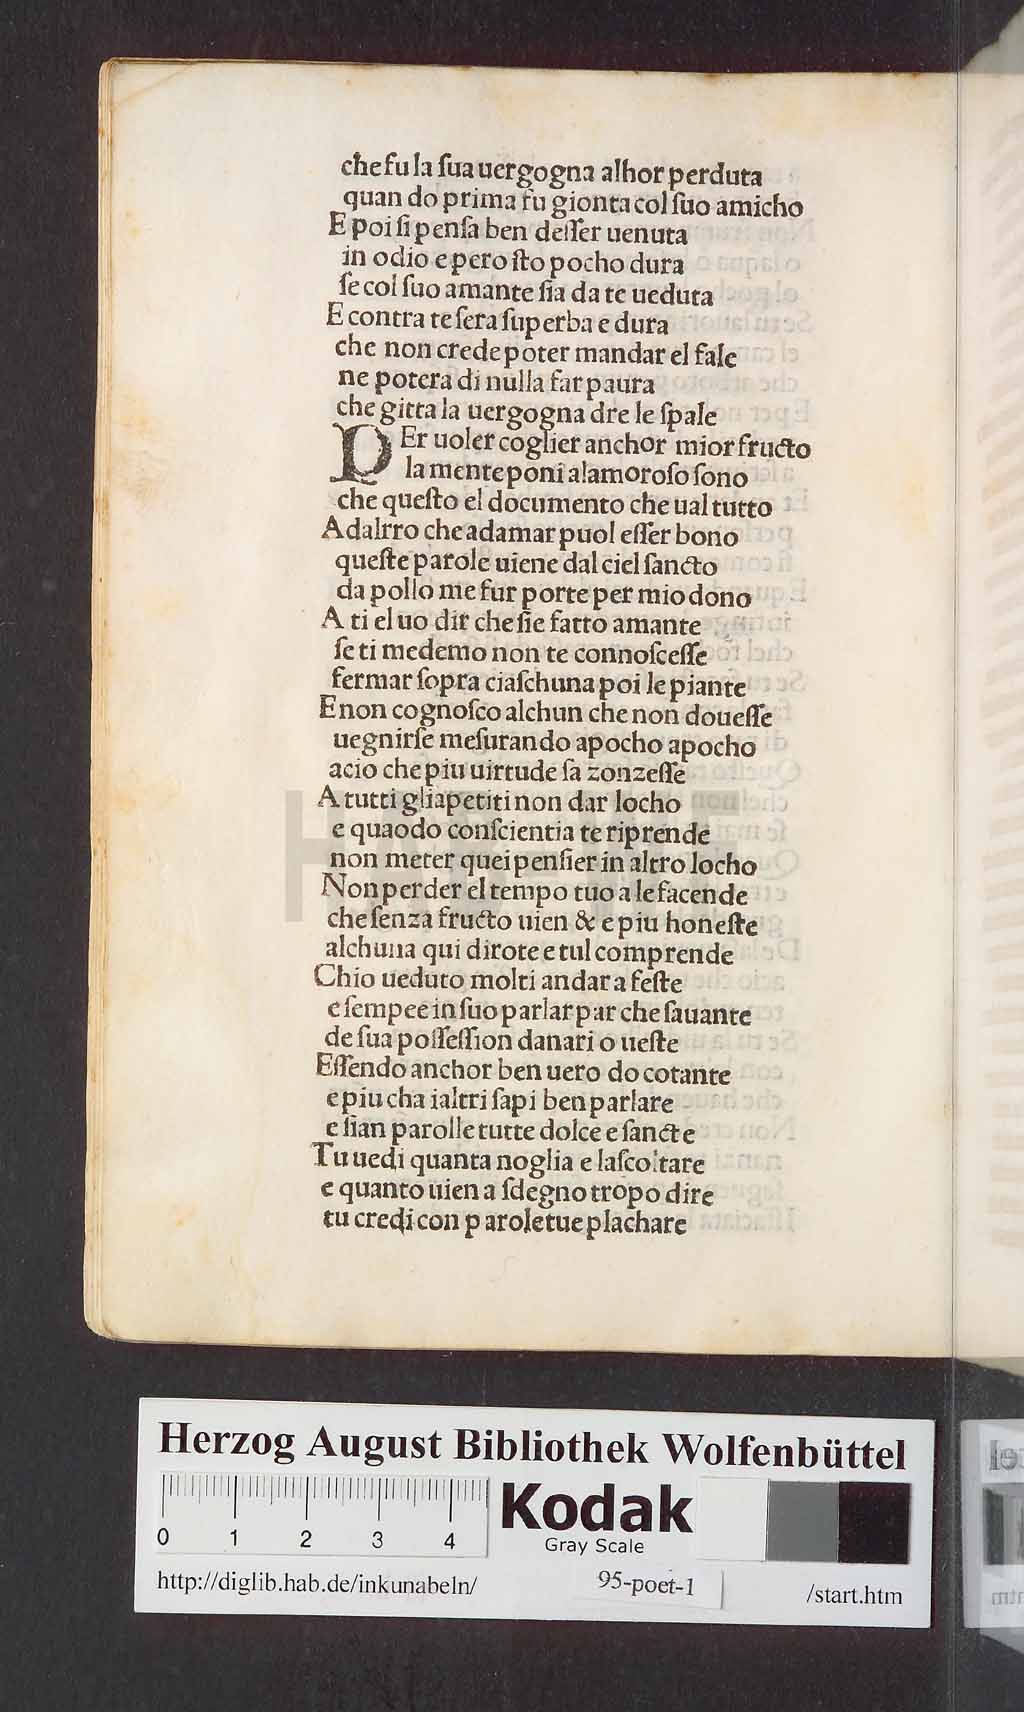 che fu la ſua uergogna alhor perduta
quan do prima fu gionta col ſuo amicho
E poi ſi penſa ben deſſer uenuta
in odio e pero ſto pocho dura
ſe col ſuo amante ſia da te ueduta
E contra te ſera ſuperba e dura
che non crede poter mandar el fale
ne potera di nulla far paura
che gitta la uergogna dre le ſpale
PEr uoler coglier anchor mior fructo
la mente poni alamoroſo ſono
che queſto el documento che ual tutto
Adalrro che adamar puol eſſer bono
queſte parole uiene dal ciel ſancto
da pollo me fur porte per mio dono
A ti el uo dir che ſie fatto amante
ſe ti medemo non te connoſceſſe
fermar ſopra ciaſchuna poi le piante
E non cognoſco alchun che non doueſſe
uegnirſe meſurando apocho apocho
acio che piu uirtude ſa zonzeſſe
A tutti gliapetiti non dar locho
e quaodo conſcientia te riprende
non meter quei penſier in altro locho
Non perder el tempo tuo a le facende
che ſenza fructo uien & e piu honeſte
alchuna qui dirote e tul comprende
Chio ueduto molti andar a feſte
e ſempee in ſuo parlar par che ſauante
de ſua poſſeſſion danari o ueſte
Eſſendo anchor ben uero do cotante
e piu cha ialtri ſapi ben parlare
e ſian parolle tutte dolce e ſancte
Tu uedi quanta noglia e laſcoltare
e quanto uien a ſdegno tropo dire
tu credi con p arole tue plachare
HAB WF
Herzog August Bibliothek Wolfenbüttel
0 1 2 3 4
Kodak
Gray Scale
http://diglib.hab.de/inkunabeln/
95-poet-1
/start.htm